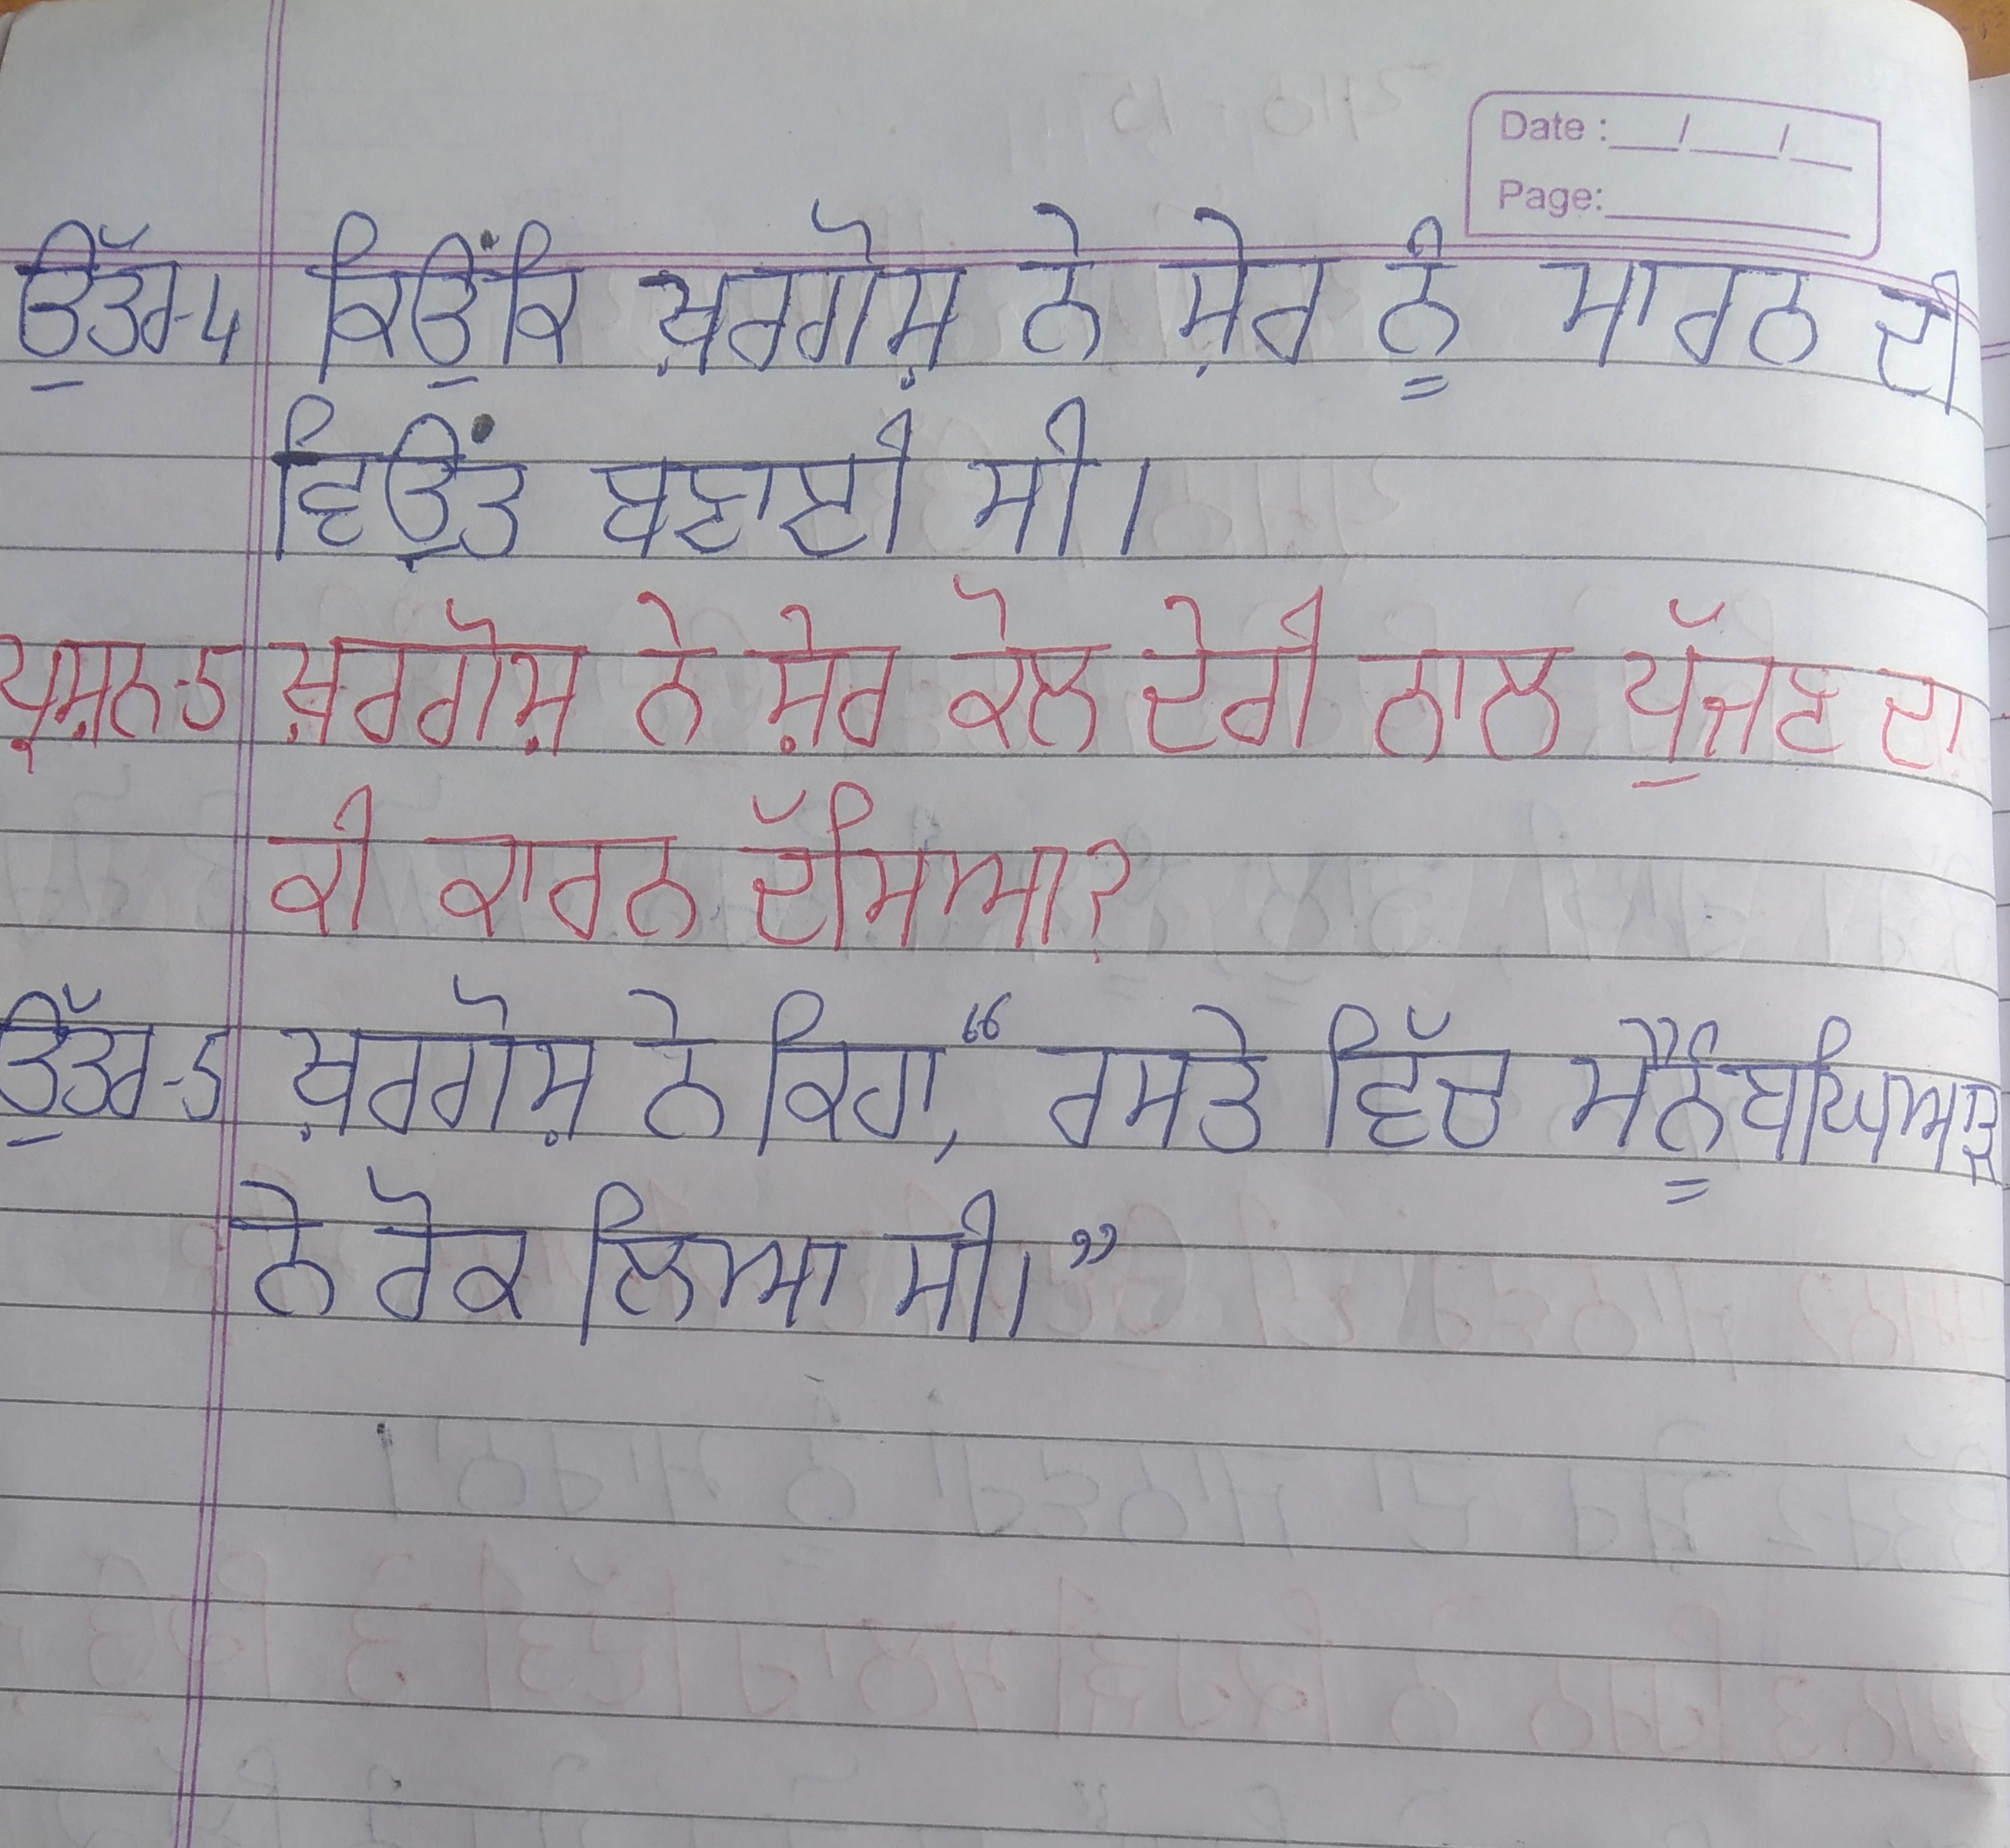 Date : __/__/__
Page: ______
ਉੱਤਰ-4 ਕਿਉਂਕਿ ਖ਼ਰਗੋਸ਼ ਨੇ ਸ਼ੇਰ ਨੂੰ ਮਾਰਨ ਦੀ
ਵਿਉਂਤ ਬਣਾਈ ਸੀ।
ਪ੍ਰਸ਼ਨ-5 ਖ਼ਰਗੋਸ਼ ਨੇ ਸ਼ੇਰ ਕੋਲ ਦੇਰੀ ਨਾਲ ਪੁੱਜਣ ਦਾ
ਕੀ ਕਾਰਨ ਦੱਸਿਆ?
ਉੱਤਰ-5 ਖ਼ਰਗੋਸ਼ ਨੇ ਕਿਹਾ, “ਰਸਤੇ ਵਿੱਚ ਮੈਨੂੰ ਬਘਿਆੜ
ਨੇ ਰੋਕ ਲਿਆ ਸੀ।”